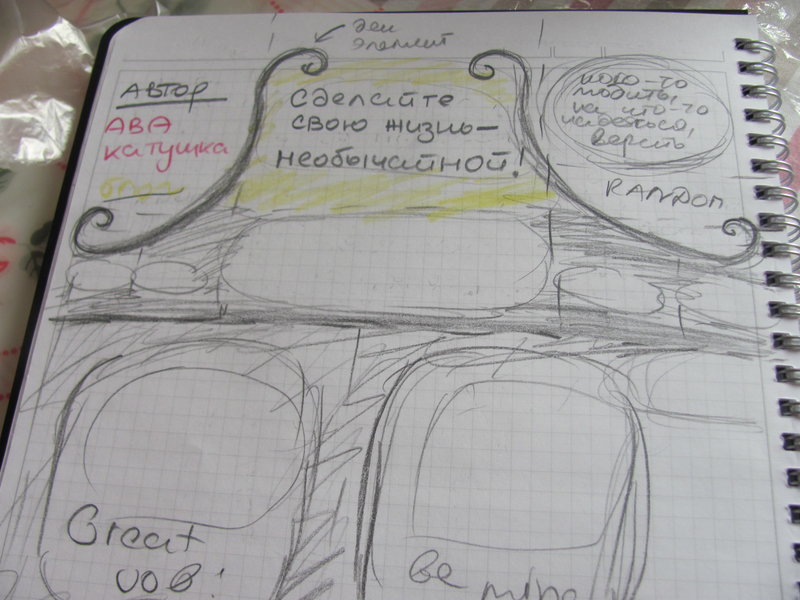 деи
элемент
АВТОР
АВА
катушка
блога
сделайте
свою жизнь—
необычайной!
кого-то
любить,
на что-то
надеяться,
верить
RANDOM
Great
be mine